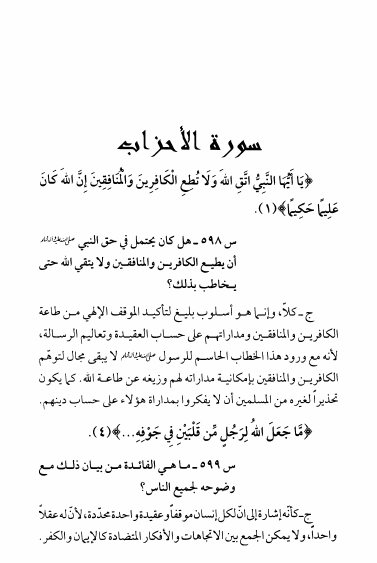 سورة الأحزاب
﴿يَا أَيُّهَا النَّبِيُّ اتَّقِ اللهَ وَلَا تُطِعِ الْكَافِرِينَ وَالْمُنَافِقِينَ إِنَّ اللهَ كَانَ
عَلِيمًا حَكِيمًا﴾(١).
س ٥٩٨ ـ هل كان يحتمل في حق النبي
أن يطيع الكافرين والمنافقين ولا يتقي الله حتى
يخاطب بذلك؟
ج ـ كلّا، وإنما هو أسلوب بليغ لتأكيد الموقف الإلهي من طاعة
الكافرين والمنافقين ومداراتهم على حساب العقيدة وتعاليم الرسالة،
لأنه مع ورود هذا الخطاب الحاسم للرسول لا يبقى مجال لتوهّم
الكافرين والمنافقين بإمكانية مداراته لهم وزيغه عن طاعة الله. كما يكون
تحذيراً لغيره من المسلمين أن لا يفكروا بمداراة هؤلاء على حساب دينهم.
﴿مَّا جَعَلَ اللهُ لِرَجُلٍ مِّن قَلْبَيْنِ فِي جَوْفِهِ...﴾(٤).
س ٥٩٩ ـ ما هي الفائدة من بيان ذلك مع
وضوحه لجميع الناس؟
ج ـ كأنّه إشارة إلى انّ لكل إنسان موقفاً وعقيدة واحدة محدّدة، لأنّ له عقلاً
واحداً، ولا يمكن الجمع بين الاتجاهات والأفكار المتضادة كالإيمان والكفر.